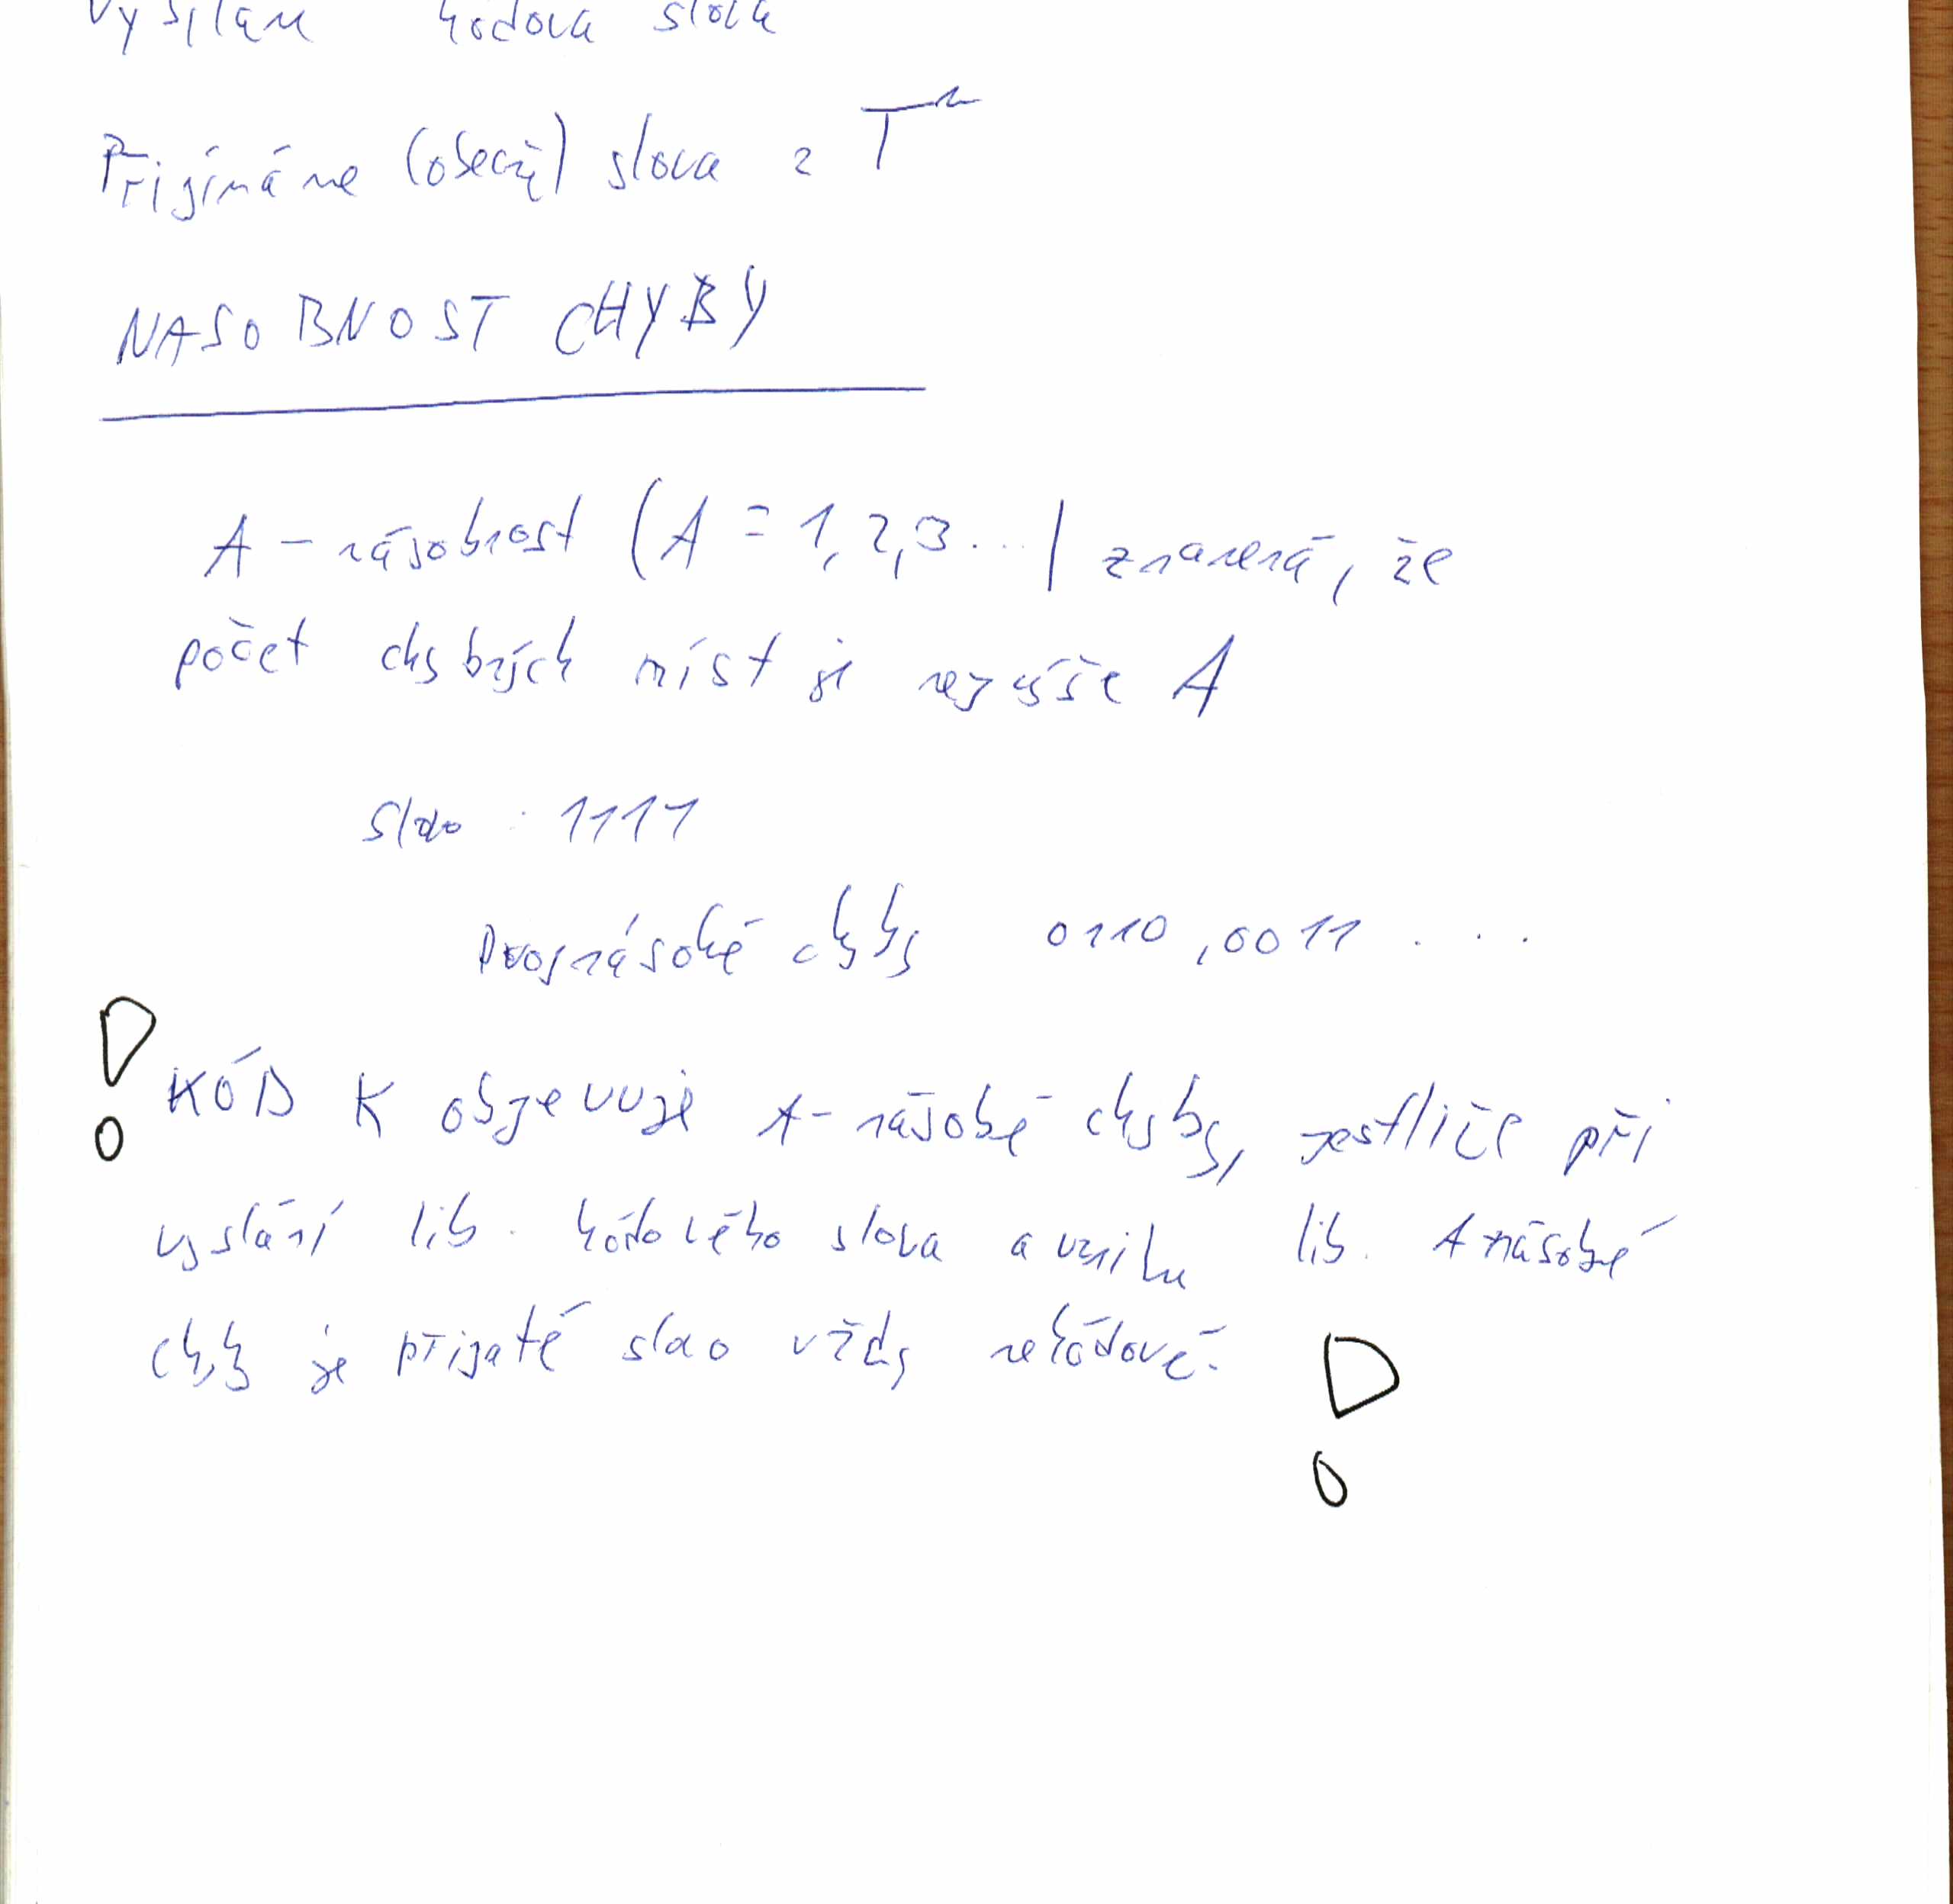 Vysílám kódová slova
Přijímáme (obecně) slova z Tⁿ
NASOBNOST CHYBY
A - násobnost (A = 1, 2, 3 ...) znamená, že
počet chybných míst je nejvýše A
Slovo : 1111
Dvojnásobné chyby 0110, 0011 . . .
! KÓD K objevuje A-násobé chyby, jestliže při
vyslání lib. kódového slova a vzniku lib. A násobé
chyby je přijaté slovo vždy nekódové. !